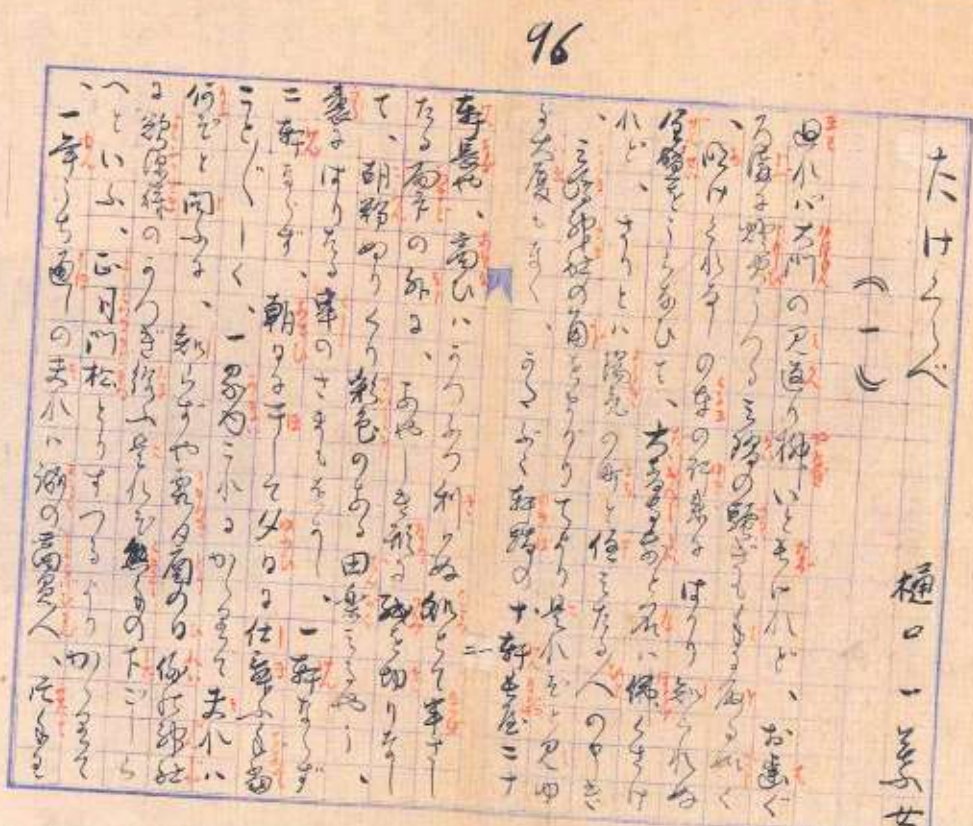 96
たけくらべ
樋口一葉女
(一)
廻れば大門の見返り柳いと長けれど、お歯ぐ
ろ溝に燈火うつる三階の騒ぎも手に取る如く
、明けくれなしの車の行来にはかり知られぬ
全盛をうらなひて、大音寺前と名は佛くさけ
れど、さりとは陽気の町と住みたる人の申き
、三嶋神社の角をまがりてより是れぞと見ゆ
る大厦もなく、かたぶく軒端の十軒長屋二十
軒長や、商ひはかつふつ利かぬ処とて半さし
たる雨戸の外に、あやしき形に紙を切りなし
て、胡粉ぬりくり彩色のある田楽みるやう、
裏にはりたる串のさまもをかし、一軒ならず
二軒ならず、朝日に干して夕日に仕舞ふ手当
ことごとしく、一家内これにかゝりて夫れは
何ぞと問ふに、知らずや霜月酉の日例の神社
に欲深様のかつぎ給ふ是れぞ熊手の下ごしら
へといふ、正月門松とりすつるよりかゝりて
、一年うち通しの夫れは誠の商買人、片手わ